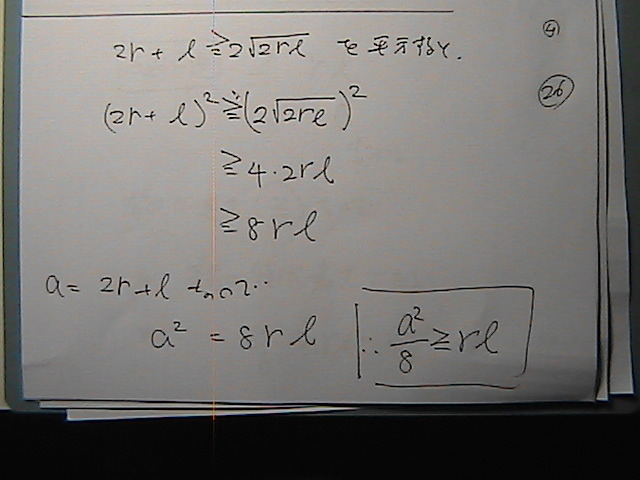 ④
2r + l ≧ 2√2rl を平方すると.
㉖
(2r + l)² ≧ (2√2rl)²
≧ 4・2rl
≧ 8rl
a = 2r + l なので‥
a² = 8rl ∴ a²/8 ≧ rl